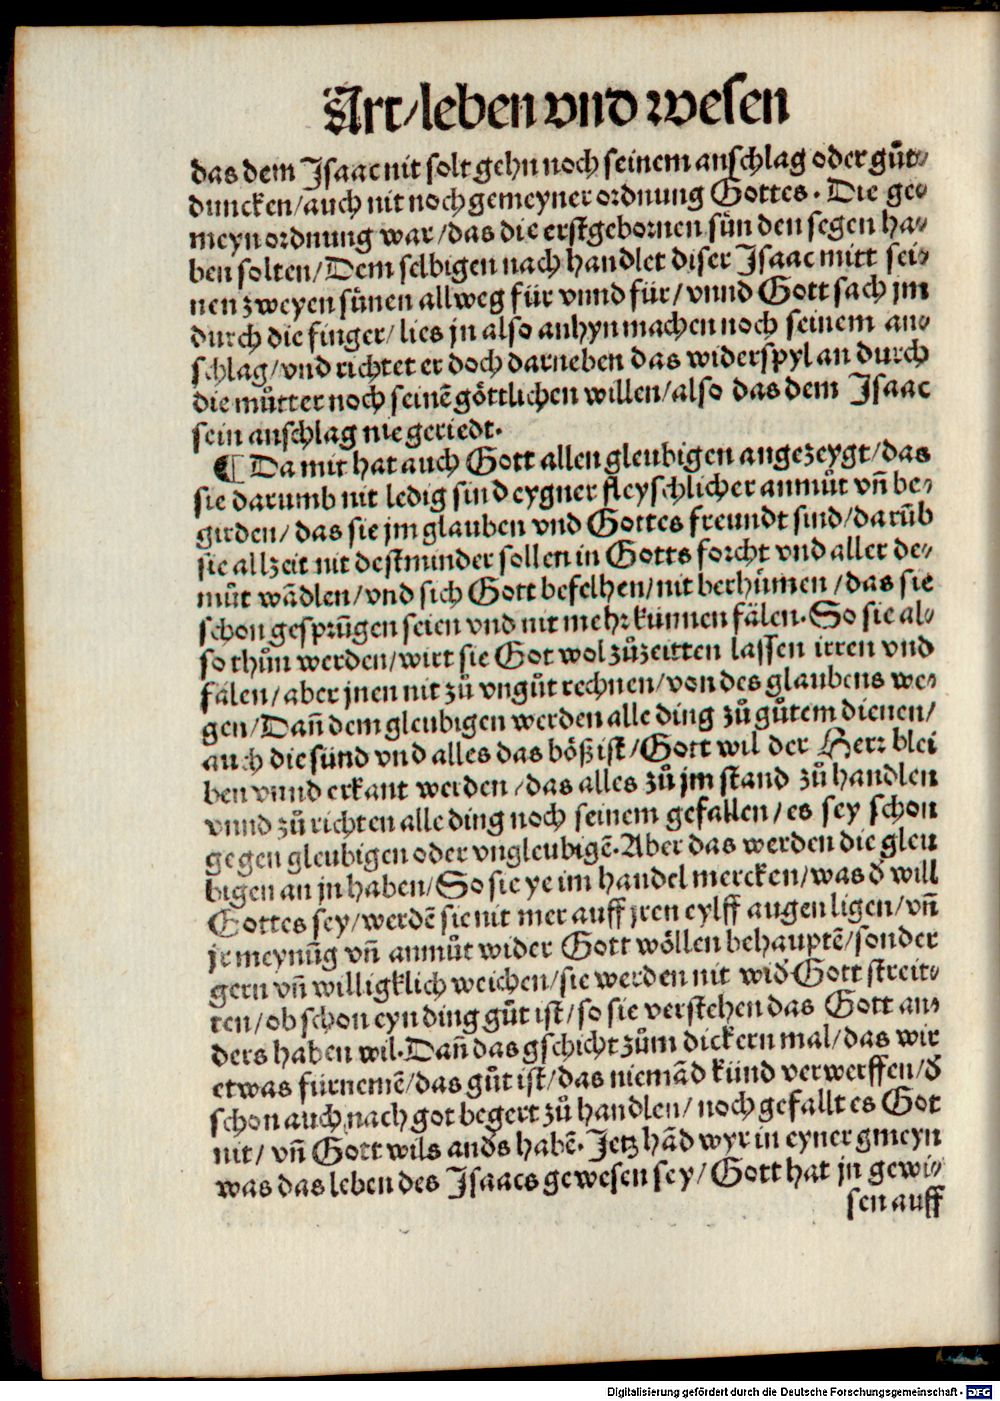 Art/leben vnd wesen
das dem Isaac nit solt gehn noch seinem anschlag oder gůt⸗
duncken/auch nit noch gemeyner ordnung Gottes. Die ge⸗
meyn ordnung war/das die erstgebornen sün den segen ha⸗
ben solten/Dem selbigen nach handlet diser Isaac mitt sei⸗
nen zweyen sünen allweg für vnnd für/vnnd Gott sach jm
durch die finger/lies jn also anhyn machen noch seinem an⸗
schlag/vnd richtet er doch darneben das widerspyl an durch
die můtter noch seinē göttlichen willen/also das dem Isaac
sein anschlag nie geriedt.
¶ Da mit hat auch Gott allen gleubigen angezeygt/das
sie darumb nit ledig sind eygner fleyschlicher anmůt vñ be⸗
girden/das sie jm glauben vnd Gottes freundt sind/darūb
sie allzeit nit destminder sollen in Gotts forcht vnd aller de⸗
můt wādlen/vnd sich Gott befelhen/nit berhümen/das sie
schon gesprūgen seien vnd nit mehr künnen fälen. So sie al⸗
so thůn werden/wirt sie Got wol zůzeitten lassen irren vnd
fälen/aber jnen nit zů vngůt rechnen/von des glaubens we⸗
gen/Dañ dem gleubigen werden alle ding zů gůtem dienen/
auch die sünd vnd alles das böß ist/Gott wil der Herr blei
ben vnnd erkant werden/das alles zů jm stand zů handlen
vnnd zů richten alle ding noch seinem gefallen/es sey schon
gegen gleubigen oder vngleubigē. Aber das werden die gleu
bigen an jn haben/So sie ye im handel mercken/was đ will
Gottes sey/werdē sie nit mer auff jren eylff augen ligen/vñ
je meynūg vñ anmůt wider Gott wöllen behauptē/sonder
gern vñ willigklich weichen/sie werden nit wiđ Gott streit⸗
ten/ob schon eyn ding gůt ist/so sie verstehen das Gott an⸗
ders haben wil. Dañ das gschicht zům dickern mal/das wir
etwas fürnemē/das gůt ist/das niemād künd verwerffen/đ
schon auch nach got begert zů handlen/noch gefallt es Got
nit/vñ Gott wils anđs habē. Jetz hād wyr in eyner gmeyn
was das leben des Isaacs gewesen sey/Gott hat jn gewi⸗
sen auff
Digitalisierung gefördert durch die Deutsche Forschungsgemeinschaft - DFG